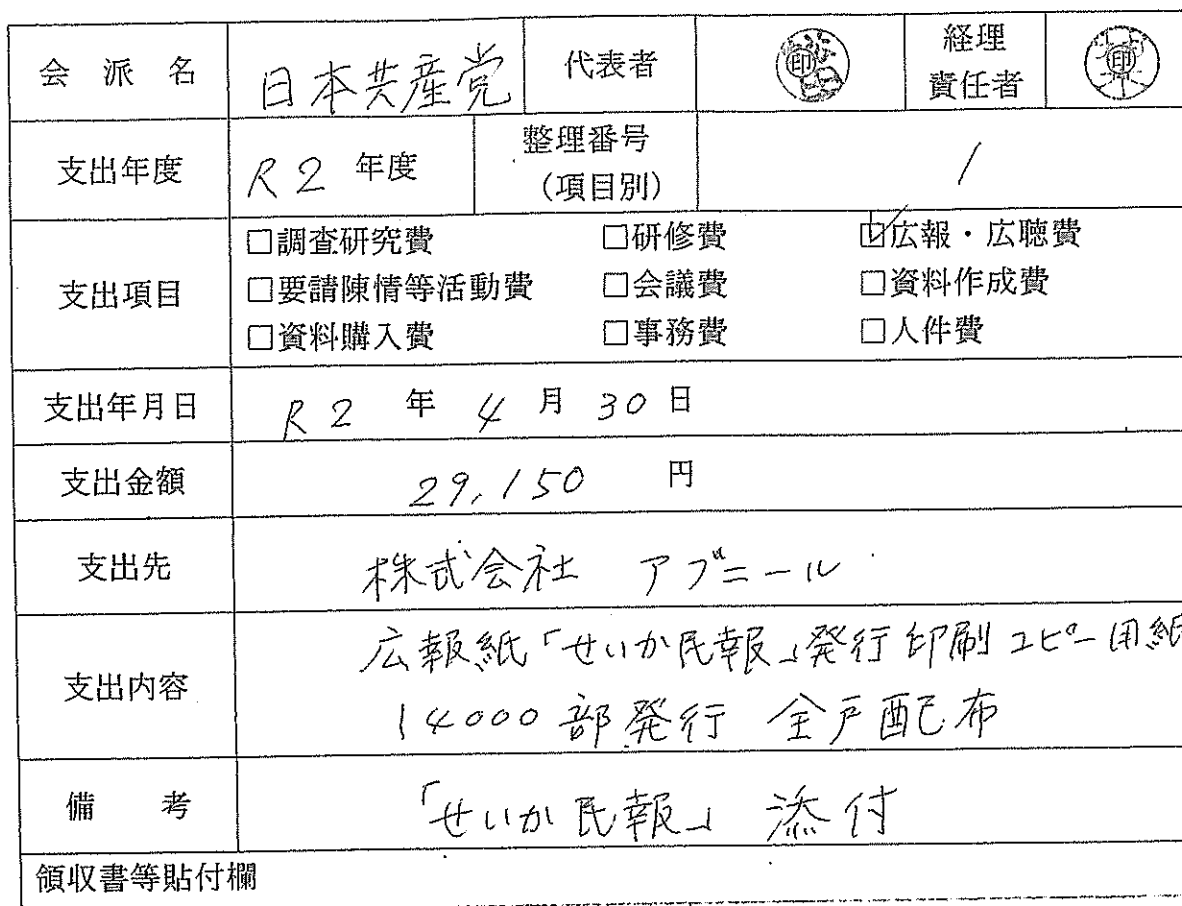 会派名 日本共産党 代表者 印 経理責任者 印
支出年度 R2年度 整理番号(項目別) 1
支出項目 □調査研究費 □研修費 ☑広報・広聴費
□要請陳情等活動費 □会議費 □資料作成費
□資料購入費 □事務費 □人件費
支出年月日 R2年4月30日
支出金額 29,150円
支出先 株式会社 アブニール
支出内容 広報紙「せいか民報」発行印刷コピー用紙
14000部発行 全戸配布
備考 「せいか民報」添付
領収書等貼付欄